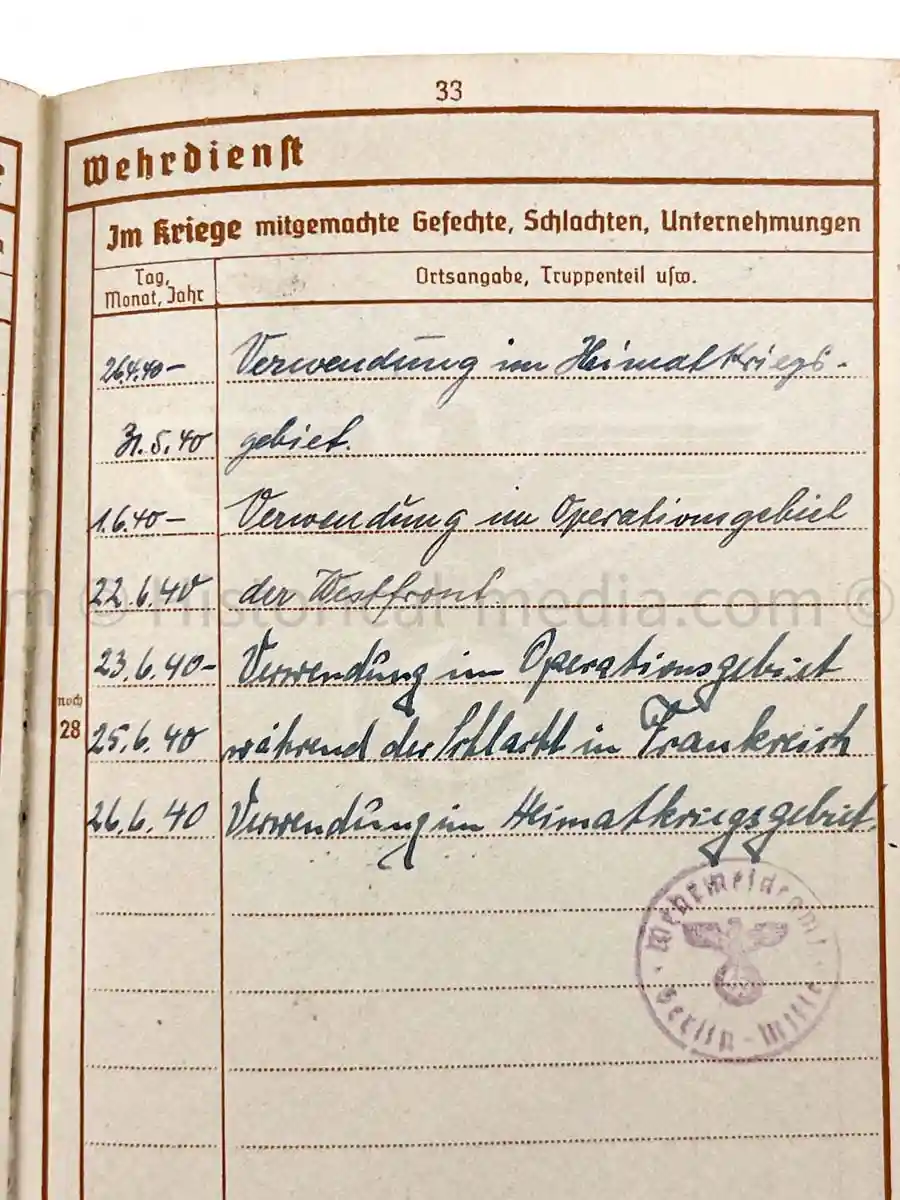 33
Wehrdienst
Im Kriege mitgemachte Gefechte, Schlachten, Unternehmungen
Tag, Monat, Jahr
Ortsangabe, Truppenteil usw.
26.4.40- Verwendung im Heimatkriegs-
31.5.40 gebiet.
1.6.40- Verwendung im Operationsgebiet
22.6.40 der Westfront.
23.6.40- Verwendung im Operationsgebiet
noch
28
25.6.40 während der Schlacht in Frankreich
26.6.40 Verwendung im Heimatkriegsgebiet.
Wehrmeldeamt
Berlin-Mitte
© Historical-media.com ©